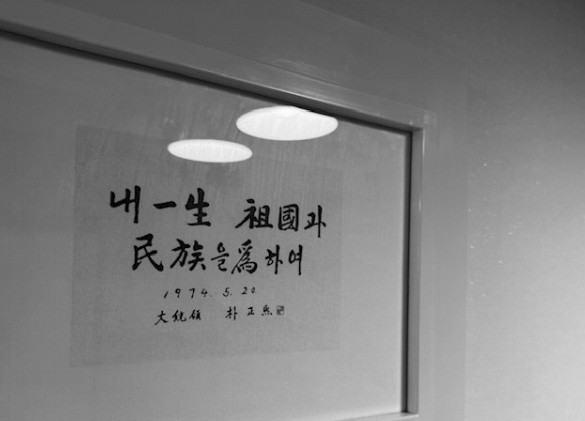 내 一生 祖國과
民族을 爲하여
1974. 5. 20
大統領 朴正熙